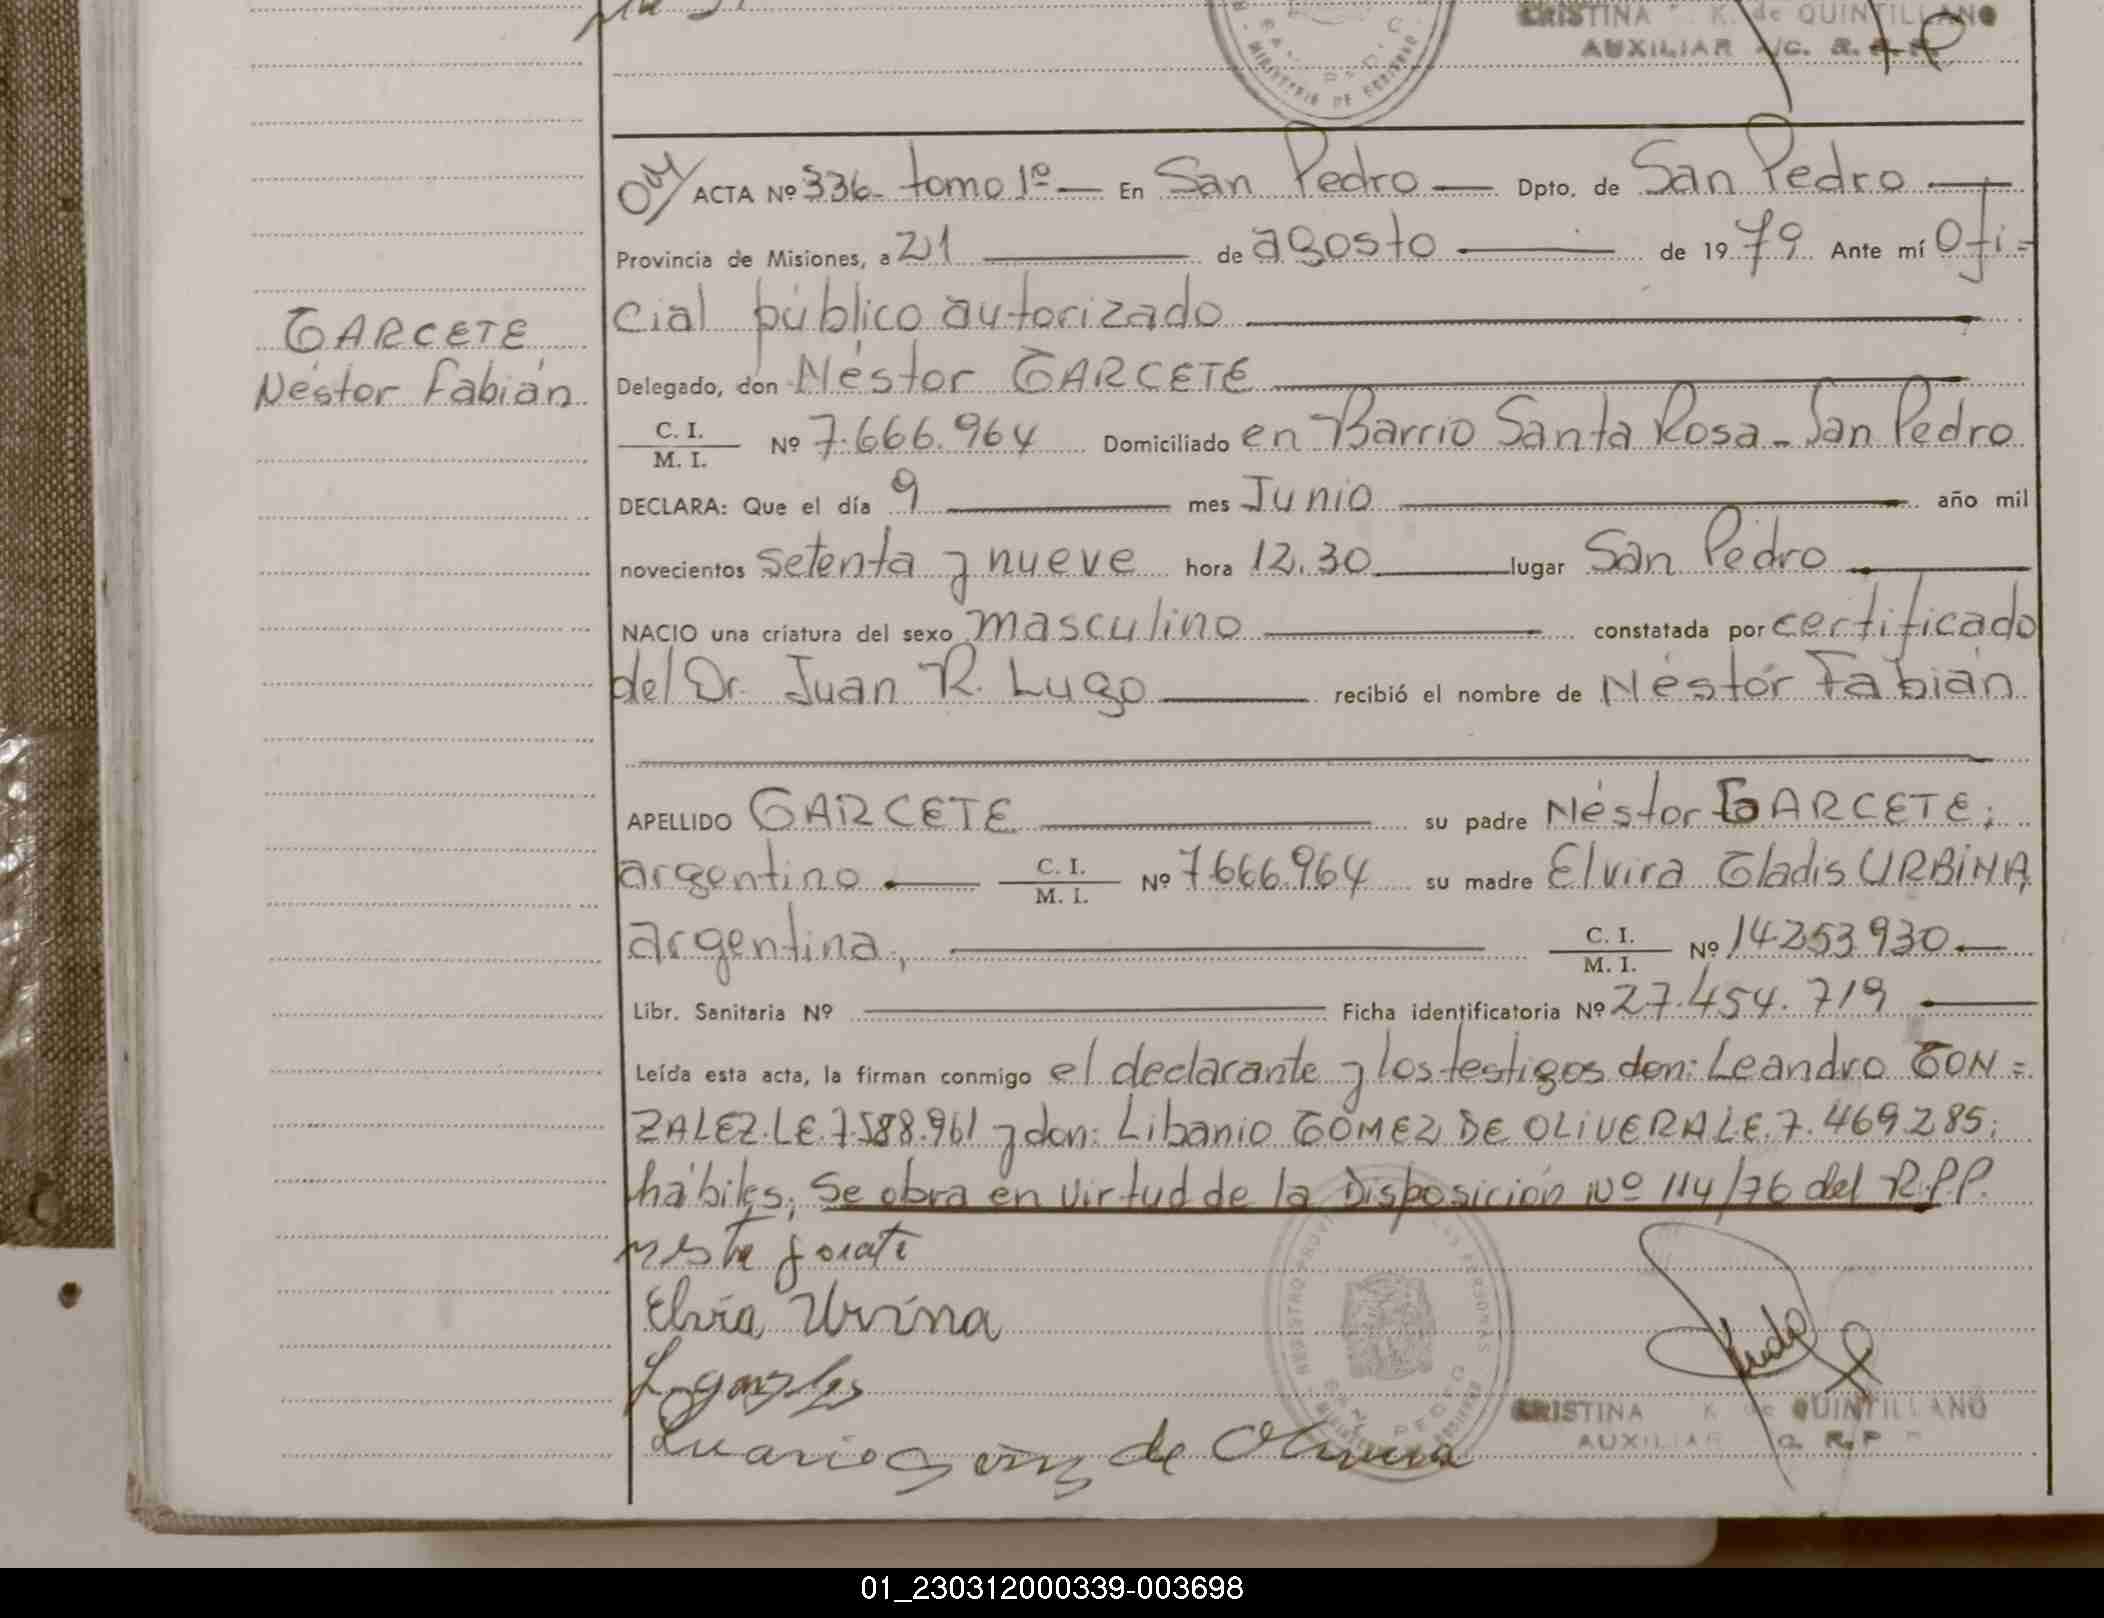 CRISTINA K. de QUINTILLANO
AUXILIAR A/C. R.
MINISTERIO DE GOBIERNO
ACTA Nº 336- tomo 1º — En San Pedro — Dpto. de San Pedro —
Provincia de Misiones, a 21 — de agosto — de 1979 Ante mí Ofi=
cial público autorizado
GARCETE
Néstor Fabián
Delegado, don Néstor GARCETE
C. I.
M. I. Nº 7.666.964 Domiciliado en Barrio Santa Rosa - San Pedro
DECLARA: Que el día 9 — mes Junio — año mil
novecientos setenta y nueve hora 12.30 — lugar San Pedro —
NACIO una criatura del sexo masculino — constatada por certificado
del Dr. Juan R. Lugo — recibió el nombre de Néstor Fabián
APELLIDO GARCETE — su padre Néstor GARCETE;
argentino — C. I.
M. I. Nº 7.666.964 su madre Elvira Gladis URBINA,
argentina, — C. I.
M. I. Nº 14.253.930 —
Libr. Sanitaria Nº — Ficha identificatoria Nº 27.454.719 —
Leída esta acta, la firman conmigo el declarante y los testigos don: Leandro GON=
ZALEZ.LE.7.588.961 y don: Libanio GOMEZ DE OLIVERA LE.7.469.285;
hábiles; Se obra en virtud de la Disposición Nº 114/76 del R.P.P.
Elvia Urvina
de Olivera
CRISTINA K de QUINTILLANO
AUXILIAR R. P
01_230312000339-003698